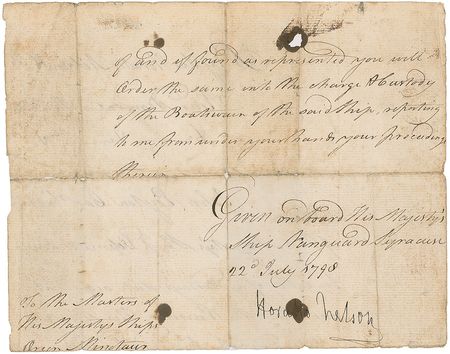 of and if found as represented you will
Order the same into the charge & Custody
of the Boatswain of the said Ship, reporting
to me from under your hands your proceedings
therein
Given on board His Majesty's
Ship Vanguard Syracuse
22d July 1798
Horatio Nelson
To the Masters of
His Majestys Ships
Orion Minotaur